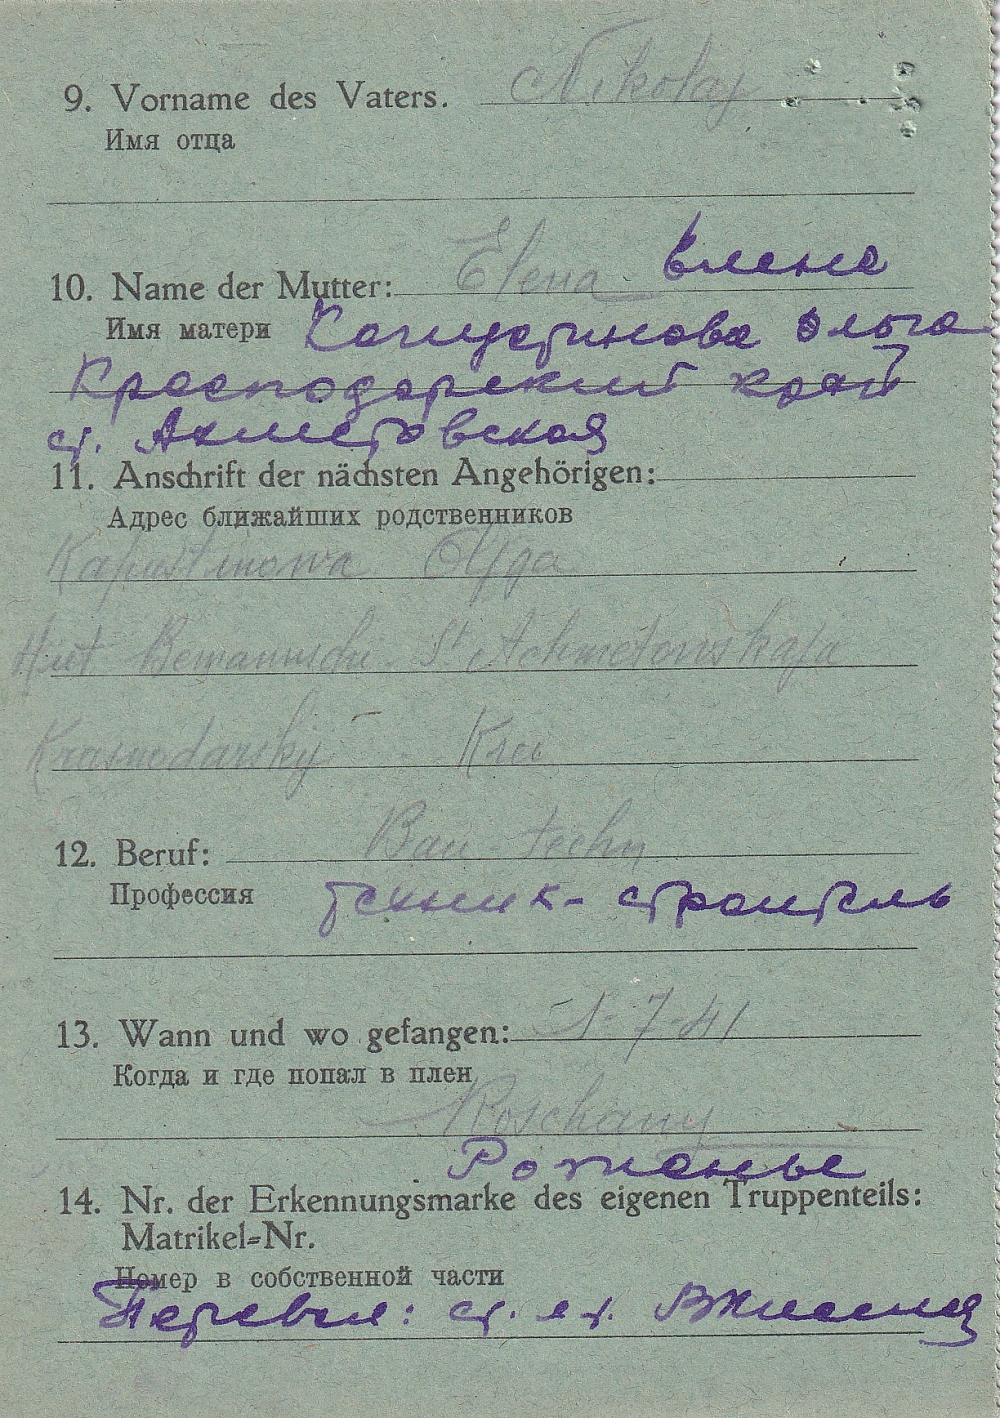 9. Vorname des Vaters. Nikolaj
Имя отца
10. Name der Mutter: Elena Елена
Имя матери Капустинова Ольга
Краснодарский край
ст. Ахметовская
11. Anschrift der nächsten Angehörigen:
Адрес ближайших родственников
Kapustinowa Olga
St Achmetowskaja
Krasnodarskij Krei
12. Beruf: Bau-techn
Профессия техник-строитель
13. Wann und wo gefangen: 1-7-41
Когда и где попал в плен
Roschany
Рожанье
14. Nr. der Erkennungsmarke des eigenen Truppenteils:
Matrikel=Nr.
Номер в собственной части
Перевел: ст. лт.